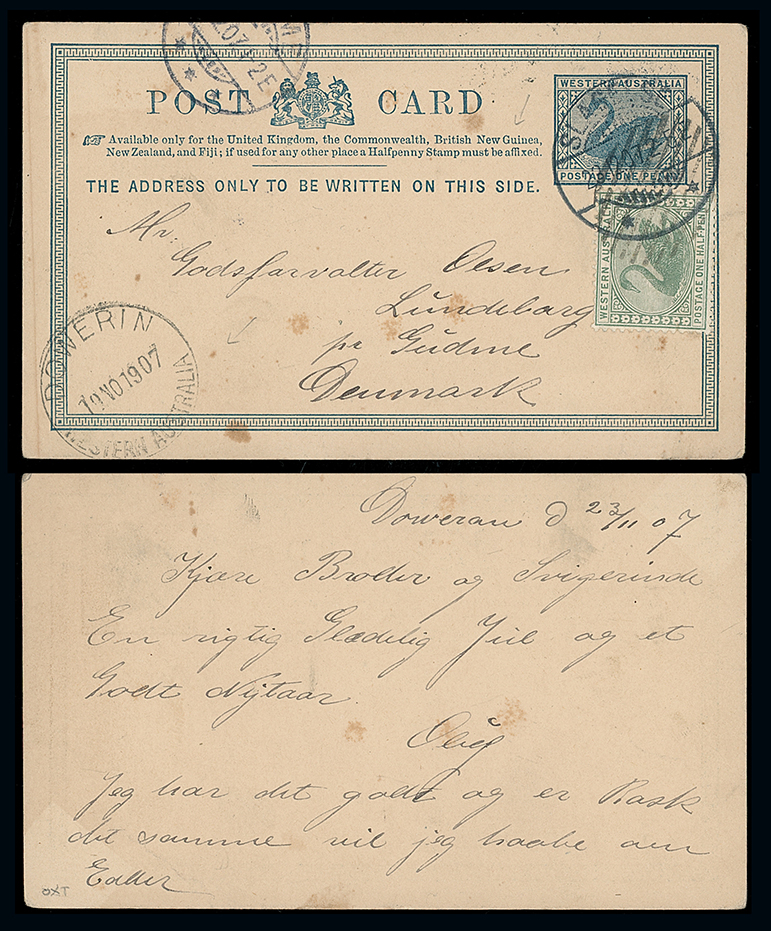 POST CARD
Available only for the United Kingdom, the Commonwealth, British New Guinea,
New Zealand, and Fiji; if used for any other place a Halfpenny Stamp must be affixed.
THE ADDRESS ONLY TO BE WRITTEN ON THIS SIDE.
WESTERN AUSTRALIA
POSTAGE ONE PENNY
WESTERN AUSTRALIA
POSTAGE ONE HALF-PENNY
Mr.
Godsforvalter Olsen
Lundeborg
pr Gudme
Denmark
DOWERIN
19 NO 19 07
WESTERN AUSTRALIA
Doweran d 23/11 07
Kjære Broder og Svigerinde
En rigtig Glædelig Jul og et
Godt Nytaar.
Jeg har det godt og er Rask
det samme vil jeg haabe om
OXT